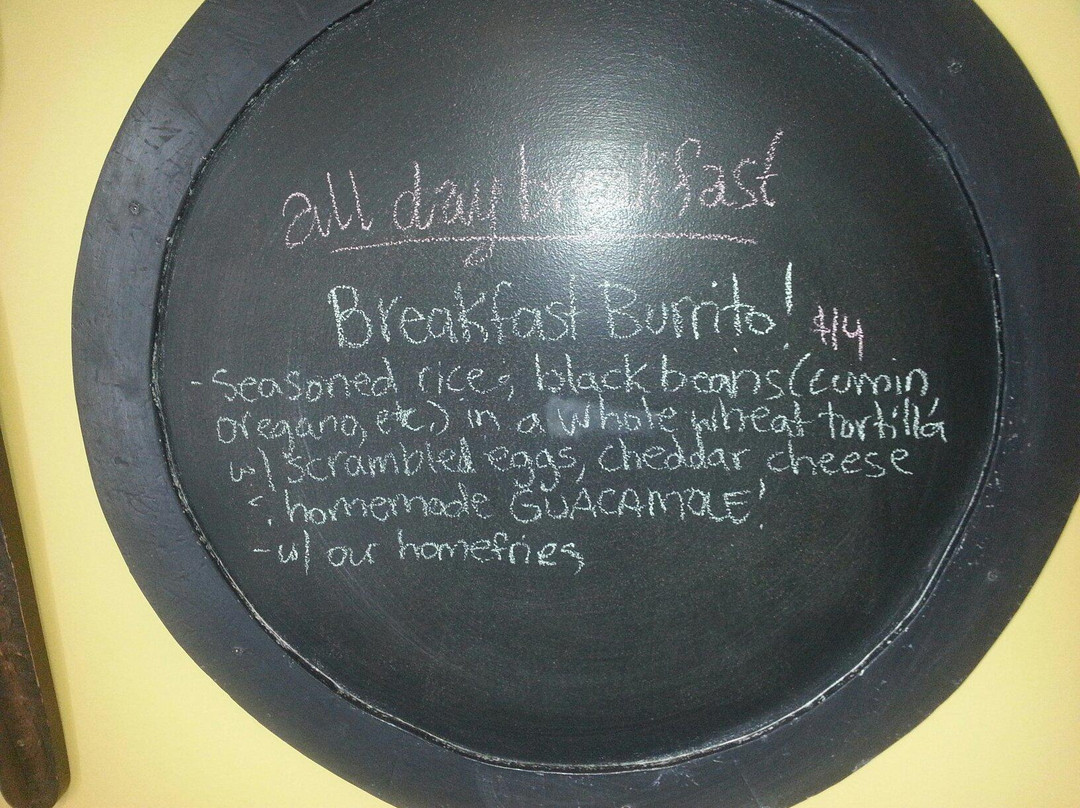 all day breakfast
Breakfast Burrito! $14
- seasoned rice, black beans (cumin,
oregano, etc.) in a whole wheat tortilla
w/ scrambled eggs, cheddar cheese
& homemade GUACAMOLE!
- w/ our homefries